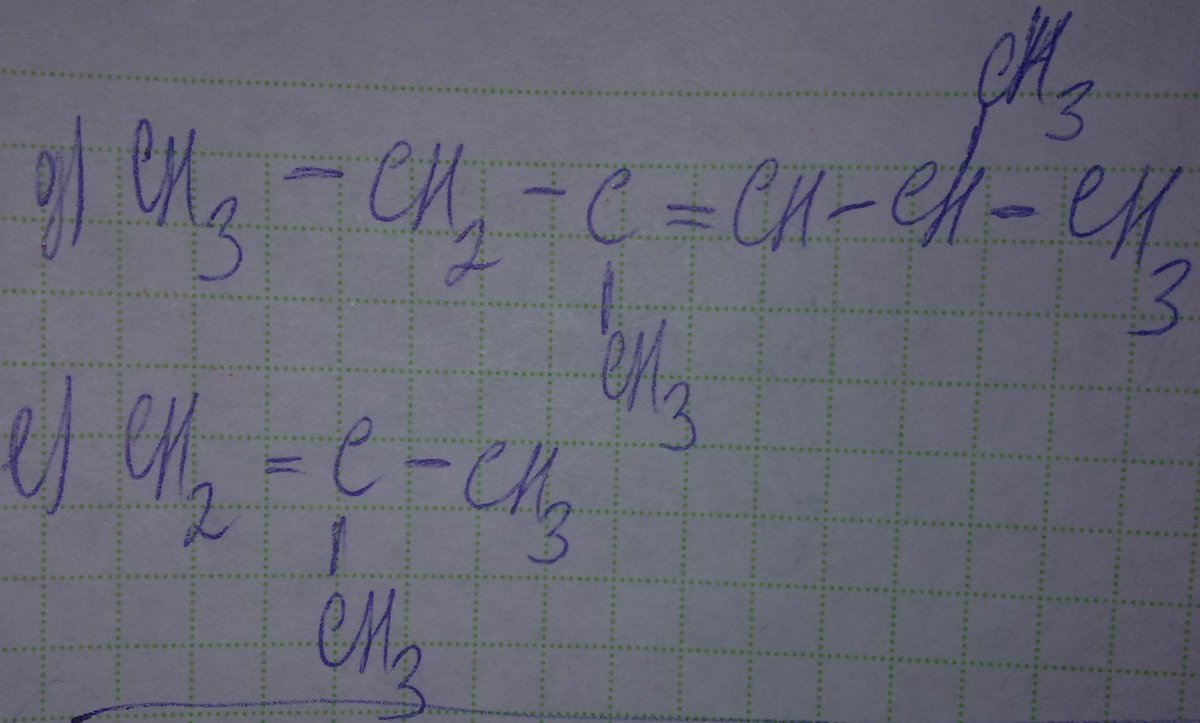 CH3
д) CH3 - CH2 - C = CH - CH - CH3
CH3
е) CH2 = C - CH3
CH3